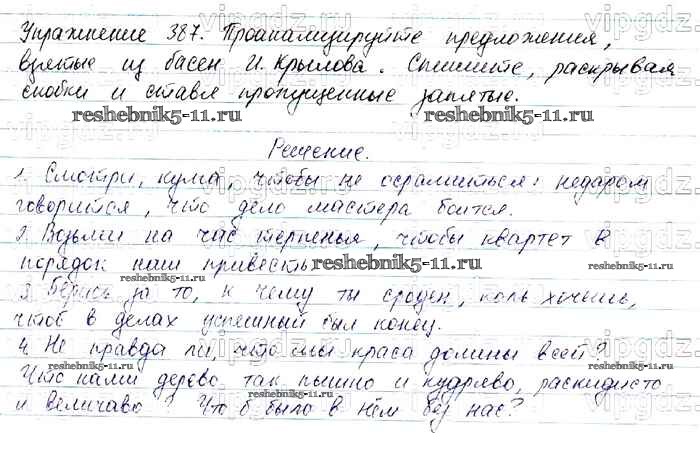 Упражнение 387. Проанализируйте предложения,
взятые из басен И. Крылова. Спишите, раскрывая
скобки и ставя пропущенные запятые.
reshebnik5-11.ru reshebnik5-11.ru
Решение.
1. Смотри, кума, чтобы не осрамиться: недаром
говорится, что дело мастера боится.
2. Возьми на час терпенья, чтобы квартет в
порядок наш привесть reshebnik5-11.ru
3. Берись за то, к чему ты сроден, коль хочешь,
чтоб в делах успешный был конец.
4. Не правда ли, что мы краса долины всей?
reshebnik5-11.ru reshebnik5-11.ru
Что нами дерево так пышно и кудряво, раскидисто
и величаво? Что б было в нём без нас?
vipgdz.ru